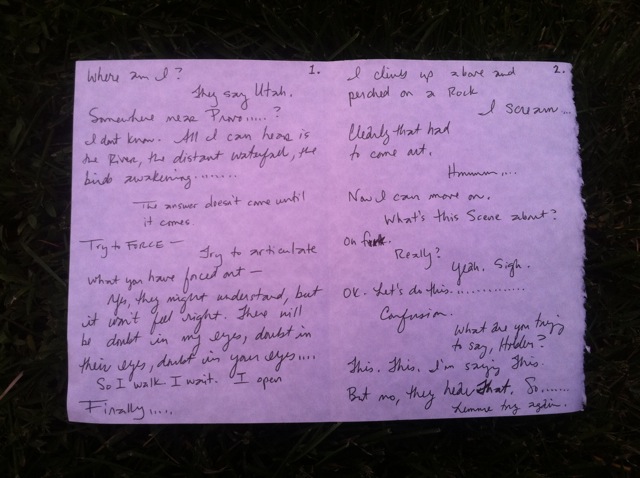 1.
Where am I?
They say Utah.
Somewhere near Provo.....?
I dont know. All I can hear is
the River, the distant waterfall, the
birds awakening.......
The answer doesn't come until
it comes.
Try to FORCE —
Try to articulate
what you have forced out —
Yes, they might understand, but
it won't feel right. There will
be doubt in my eyes, doubt in
their eyes, doubt in your eyes....
So I walk. I wait. I open
Finally.....
2.
I climb up above and
perched on a Rock
I scream...
Clearly that had
to come out.
Hmmmm....
Now I can move on.
What's this Scene about?
Oh fuck.
Really?
Yeah. Sigh.
OK. Let's do this..............
Confusion.
What are you trying
to say, Holder?
This. This. I'm saying This.
But no, they hear that. So.......
Lemme try again.